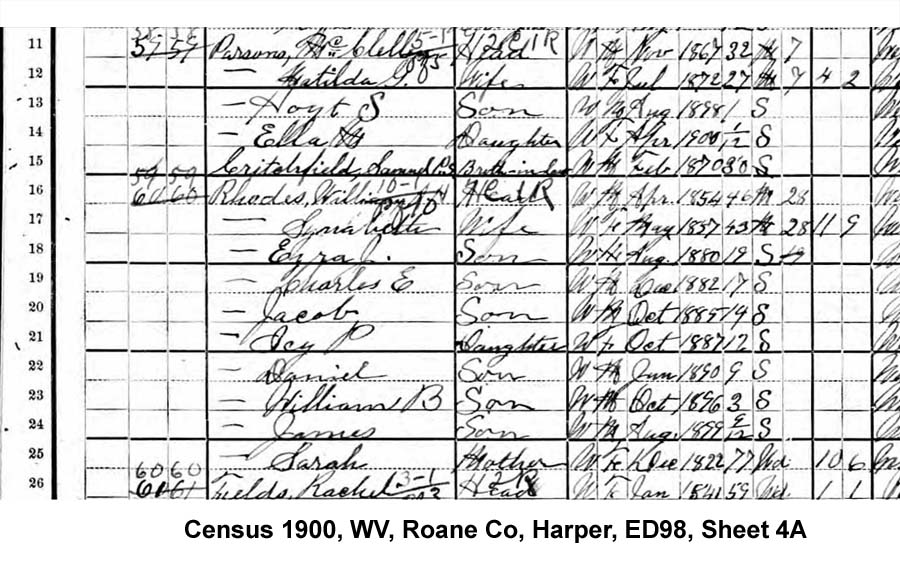 11 59 59 Parsons, McClellan Head W M Nov 1867 32 M 7
12 — Matilda G. Wife W F Jul 1872 27 M 7 4 2
13 — Hoyt S Son W M Aug 1898 1 S
14 — Ella M Daughter W F Apr 1900 1/12 S
15 Critchfield, Samuel Broth-in-law W M Feb 1870 30 S
59 59
16 60 60 Rhodes, William Head R W M Apr 1854 46 M 28
17 — Wife W F May 1857 43 M 28 11 9
18 — Ezra J. Son W M Aug 1880 19 S 19
19 — Charles E Son W M Dec 1882 17 S
20 — Jacob Son W M Oct 1885 14 S
21 — Icy P Daughter W F Oct 1887 12 S
22 — Daniel Son W M Jun 1890 9 S
23 — William B Son W M Oct 1896 3 S
24 — James Son W M Aug 1899 9/12 S
25 — Sarah Mother W F Dec 1822 77 Wd 10 6
60 60
26 61 61 Fields, Rachel Head W F Jan 1841 59 Wd 1 1
Census 1900, WV, Roane Co, Harper, ED98, Sheet 4A